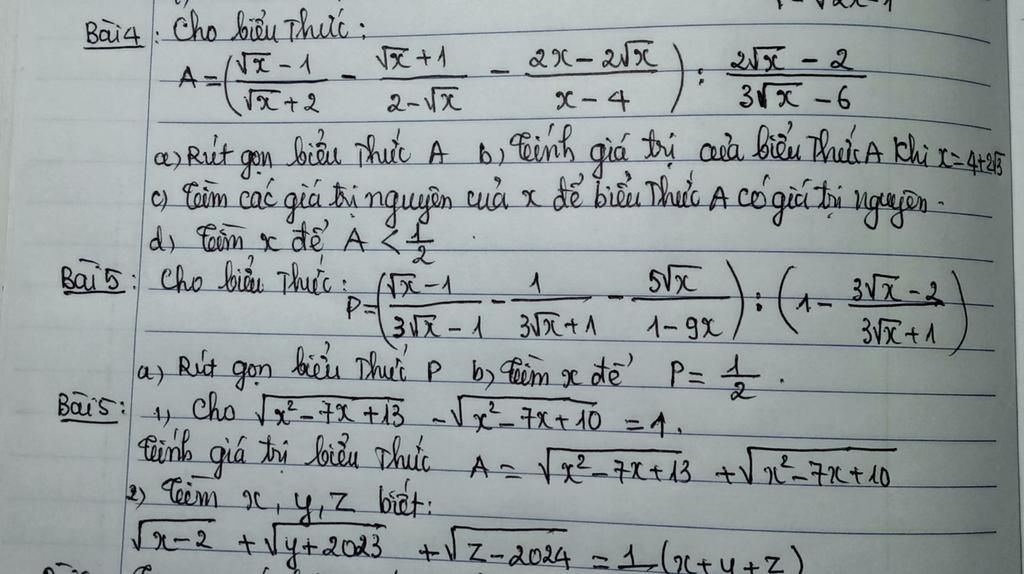 Bài 4: Cho biểu thức:
A = ( (√x − 1)/(√x + 2) − (√x + 1)/(2 − √x) − (2x − 2√x)/(x − 4) ) : (2√x − 2)/(3√x − 6)
a) Rút gọn biểu thức A b) Tính giá trị của biểu thức A khi x = 4 + 2√3
c) Tìm các giá trị nguyên của x để biểu thức A có giá trị nguyên.
d) Tìm x để A < 1/2
Bài 5: Cho biểu thức: P = ( (√x − 1)/(3√x − 1) − 1/(3√x + 1) − 5√x/(1 − 9x) ) : ( 1 − (3√x − 2)/(3√x + 1) )
a) Rút gọn biểu thức P b) Tìm x để P = 1/2.
Bài 5: 1) Cho √(x² − 7x + 13) − √(x² − 7x + 10) = 1.
Tính giá trị biểu thức A = √(x² − 7x + 13) + √(x² − 7x + 10)
2) Tìm x, y, z biết:
√(x − 2) + √(y + 2023) + √(z − 2024) = 1 (x + y + z)